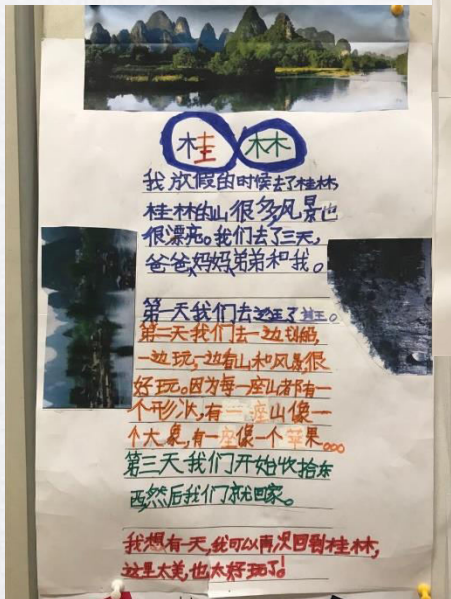 桂林
我放假的时候去了桂林,
桂林的山很多,风景也
很漂亮。我们去了三天,
爸爸、妈妈、弟弟和我。
第一天我们去逛了
第二天我们去一边划船,
一边玩,一边看山和风景,很
好玩。因为每一座山都有一
个形状,有一座山像一
个大象,有一座像一个苹果。。。
第三天我们开始收拾东
西,然后我们就回家。
我想有一天,我可以再次回到桂林,
这里太美,也太好玩了!